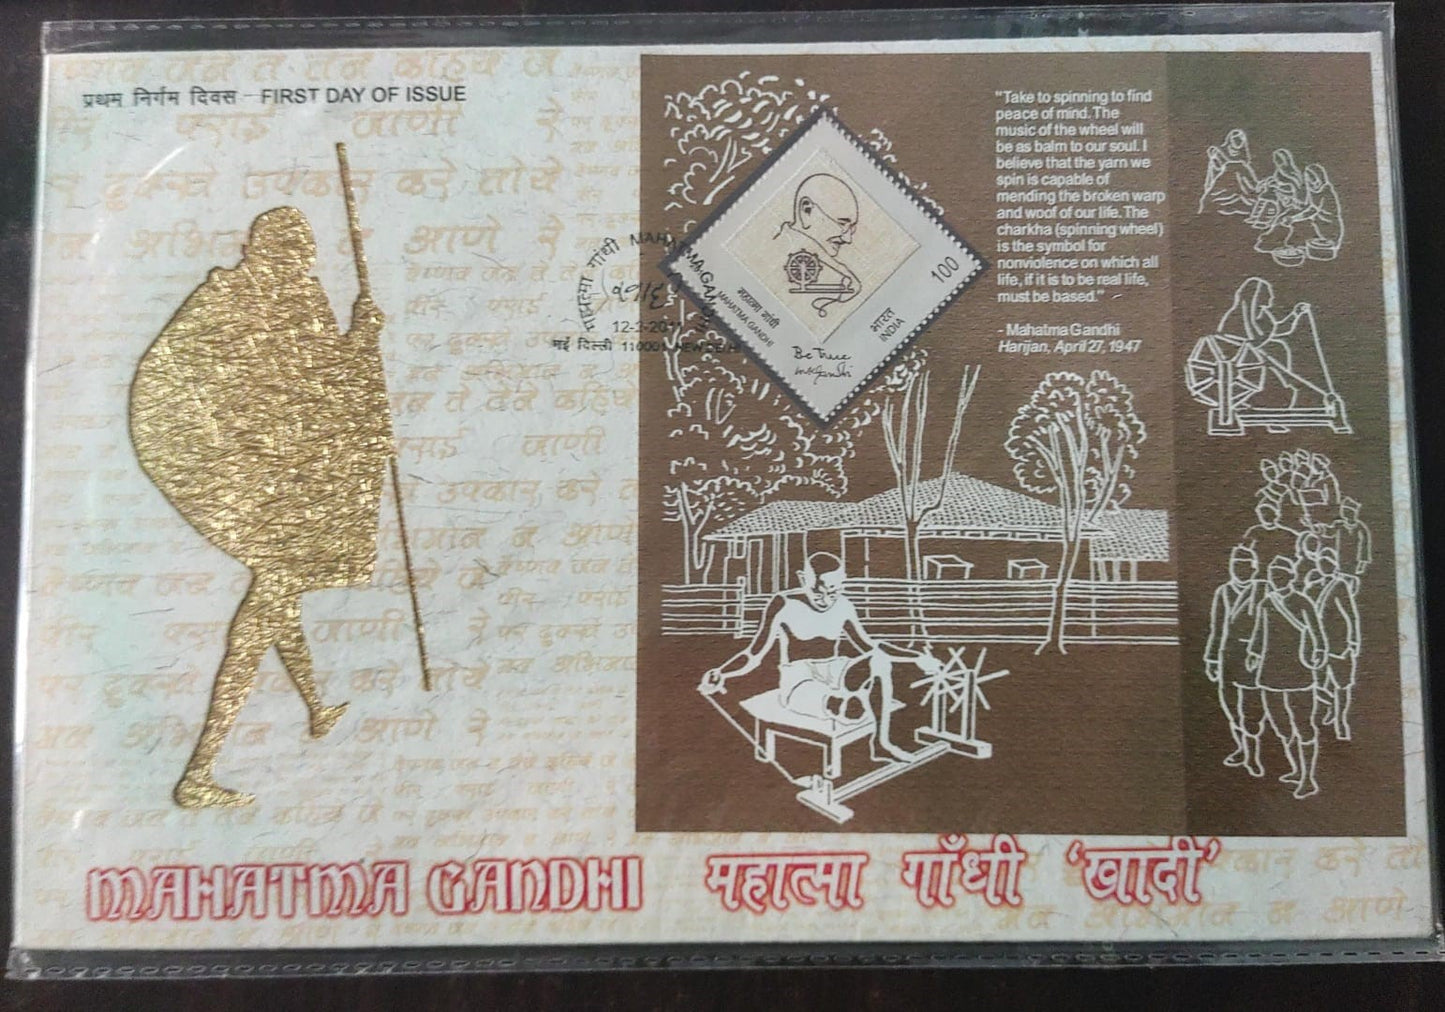 प्रथम निर्गम दिवस - FIRST DAY OF ISSUE
"Take to spinning to find
peace of mind. The
music of the wheel will
be as balm to our soul. I
believe that the yarn we
spin is capable of
mending the broken warp
and woof of our life. The
charkha (spinning wheel)
is the symbol for
nonviolence on which all
life, if it is to be real life,
must be based."
- Mahatma Gandhi
Harijan, April 27, 1947
100
महात्मा गांधी
MAHATMA GANDHI
भारत
INDIA
Be True
mkgandhi
महात्मा गांधी MAHATMA GANDHI
नई दिल्ली 110001 NEW DELHI
वैष्णव जन तो तेने कहिये जे
पीर पराई जाणे रे
पर दुःखे उपकार करे तोये
मन अभिमान न आणे रे
MAHATMA GANDHI महात्मा गाँधी 'खादी'